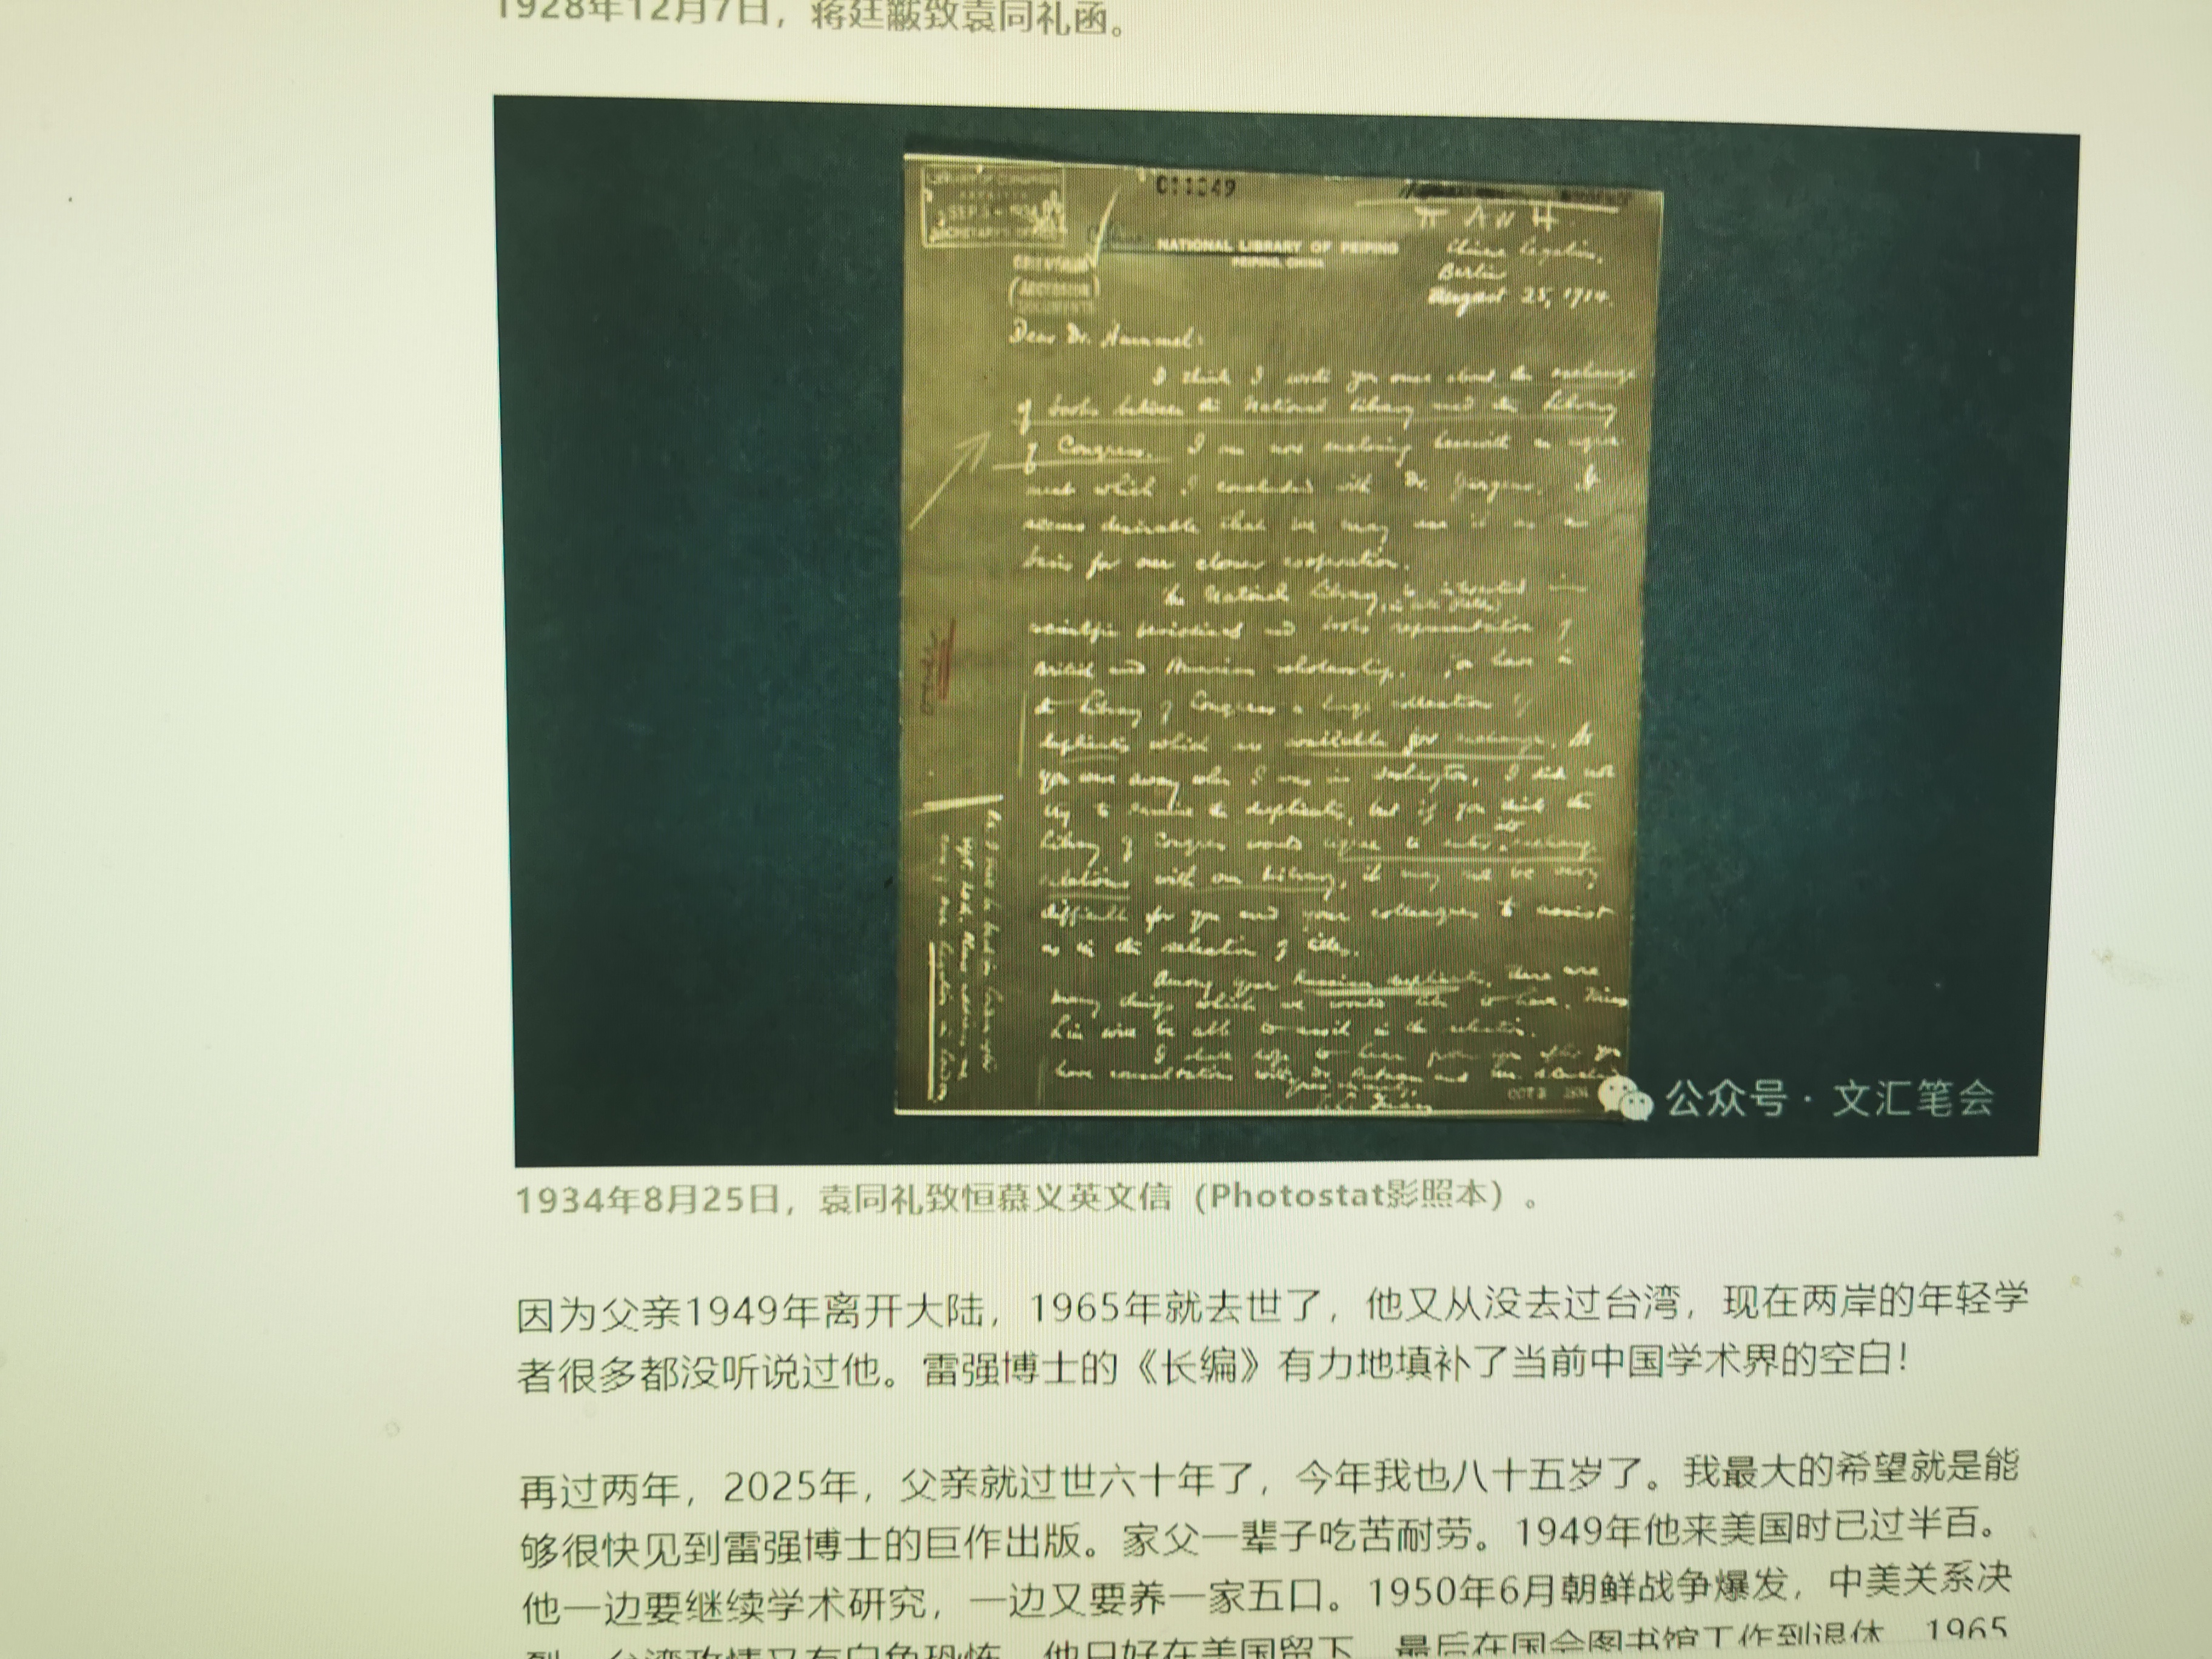 1928年12月7日，蒋廷黻致袁同礼函。
011349
NATIONAL LIBRARY OF PEIPING
PEIPING, CHINA
Chinese Legation,
Berlin
August 25, 1934.
Dear Dr. Hummel:
I think I wrote you once about the exchange
of books between the National Library and the Library
of Congress. I am now enclosing herewith an agree
ment which I concluded with Dr. Jürgens. It
seems desirable that we may use it as a
basis for our closer cooperation.
The National Library is interested in
scientific periodicals and books representative of
British and American scholarship. You have in
the Library of Congress a large collection of
duplicates which are available for exchange. As
you were away when I was in Washington, I did not
try to examine the duplicates, but if you and the
Library of Congress would agree to enter into exchange
relations with our Library, it may not be very
difficult for you and your colleagues to assist
us in the selection of titles.
Among your Russian duplicates, there are
many things which we would like to have. Miss
Lin will be able to assist in the selection.
I shall hope to hear from you after you
have consultations with Dr. Putnam and
公众号 · 文汇笔会
1934年8月25日，袁同礼致恒慕义英文信（Photostat影照本）。
因为父亲1949年离开大陆，1965年就去世了，他又从没去过台湾，现在两岸的年轻学
者很多都没听说过他。雷强博士的《长编》有力地填补了当前中国学术界的空白！
再过两年，2025年，父亲就过世六十年了，今年我也八十五岁了。我最大的希望就是能
够很快见到雷强博士的巨作出版。家父一辈子吃苦耐劳。1949年他来美国时已过半百。
他一边要继续学术研究，一边又要养一家五口。1950年6月朝鲜战争爆发，中美关系决
裂，台湾政情又有白色恐怖，他只好在美国留下，最后在国会图书馆工作到退休。1965